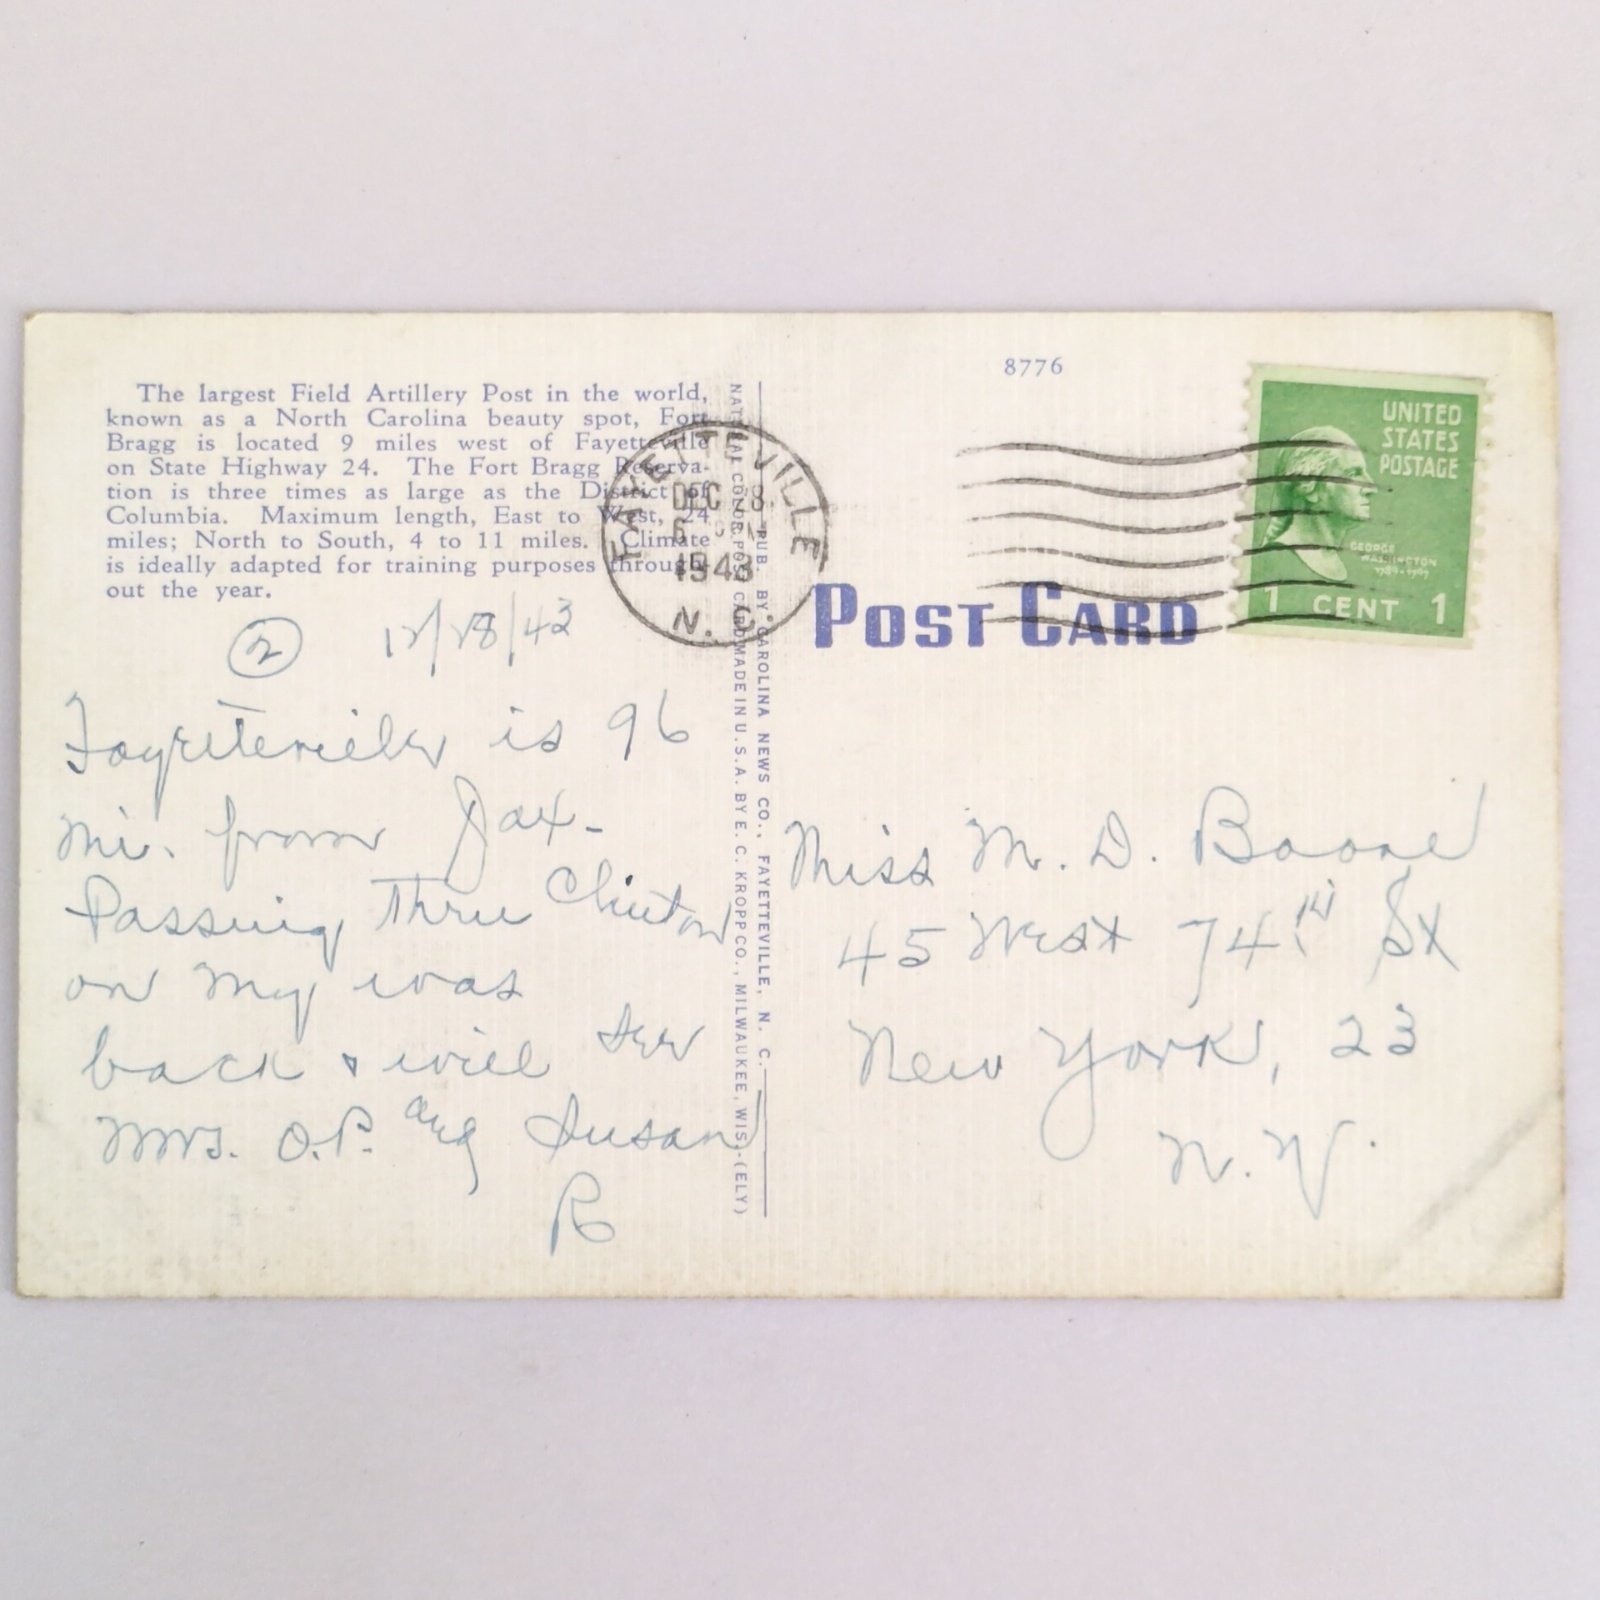 The largest Field Artillery Post in the world,
known as a North Carolina beauty spot, Fort
Bragg is located 9 miles west of Fayetteville
on State Highway 24. The Fort Bragg Reserva-
tion is three times as large as the District of
Columbia. Maximum length, East to West, 24
miles; North to South, 4 to 11 miles. Climate
is ideally adapted for training purposes through-
out the year.
2
12/28/43
Fayetteville is 96
mi. from Jax-
Passing Thru Clinton
on my was
back & will see
Mrs. O.P. and Susan
R
FAYETTEVILLE
DEC 28
1943
N. C.
PUB. BY CAROLINA NEWS CO., FAYETTEVILLE, N. C.
NATURAL COLOR POST CARD MADE IN U.S.A. BY E. C. KROPP CO., MILWAUKEE, WIS.-(ELY)
8776
POST CARD
UNITED
STATES
POSTAGE
GEORGE
WASHINGTON
1789-1797
1 CENT 1
Miss M. D. Boone
45 West 74th St
New York, 23
N.Y.